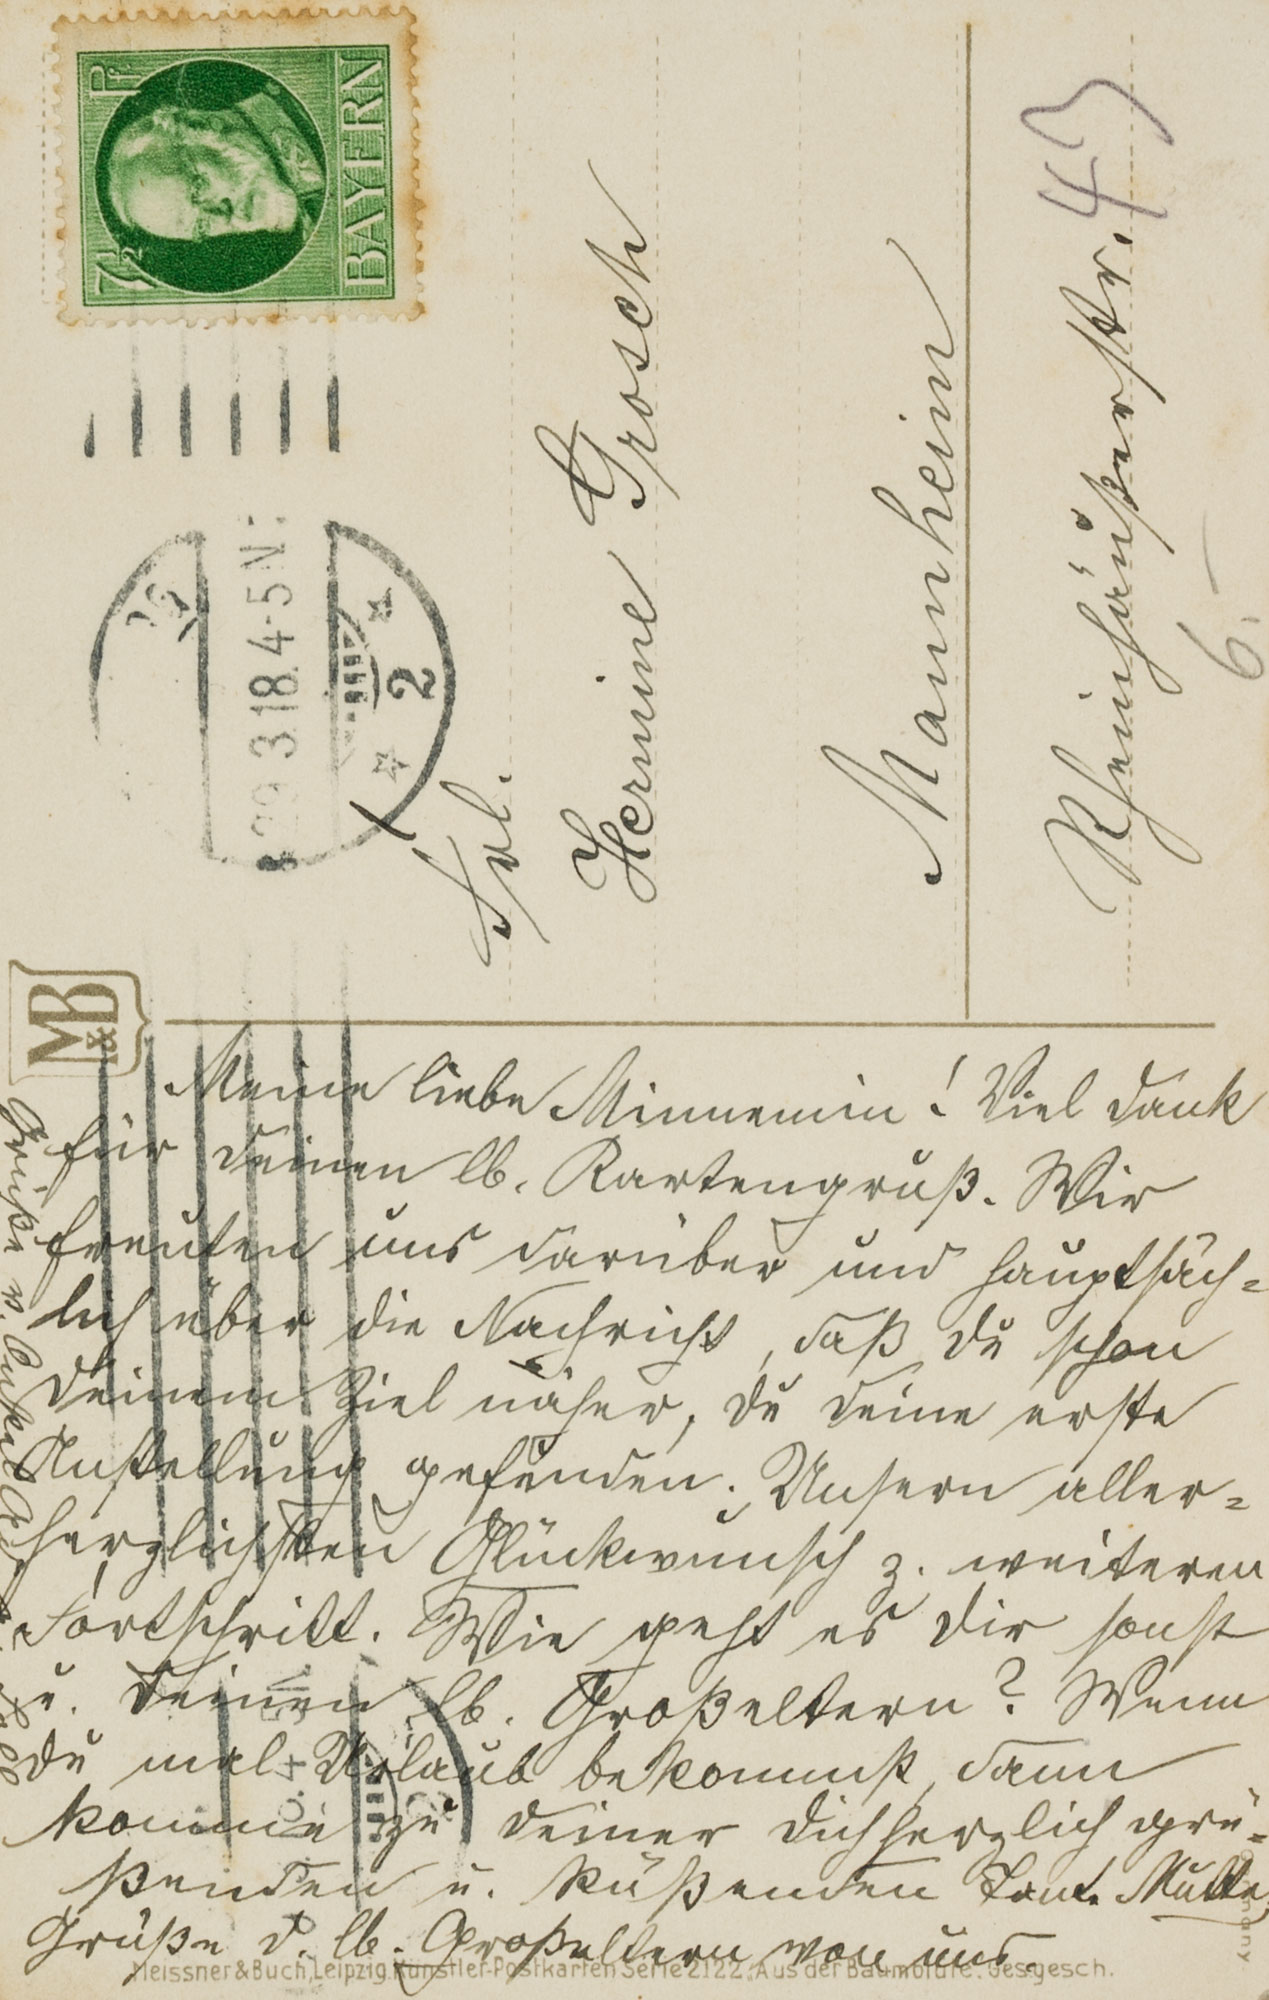 7½ Pf
BAYERN
29.3.18. 4-5 N.
2
Frl.
Hermine Grosch
Mannheim
Rheinhäuserstr. 43
6.-
M&B
Meine liebe Minnemin! Viel Dank
für Deinen lb. Kartengruß. Wir
freuten uns darüber und hauptsäch-
lich über die Nachricht, daß Du schon
Deinem Ziel näher, Du Deine erste
Anstellung gefunden. Unsern aller-
herzlichsten Glückwunsch z. weiteren
Fortschritt. Wie geht es Dir sonst
u. Deinen lb. Großeltern? Wenn
Du mal Urlaub bekommst, dann
komme zu Deiner Dich herzlich grü-
ßenden u. küßenden Tante
Grüße d. lb. Großeltern von uns.
Grüße v. Onkel
Meissner & Buch, Leipzig Künstler-Postkarten Serie 2122. Aus der Baumblüte. Ges. gesch.